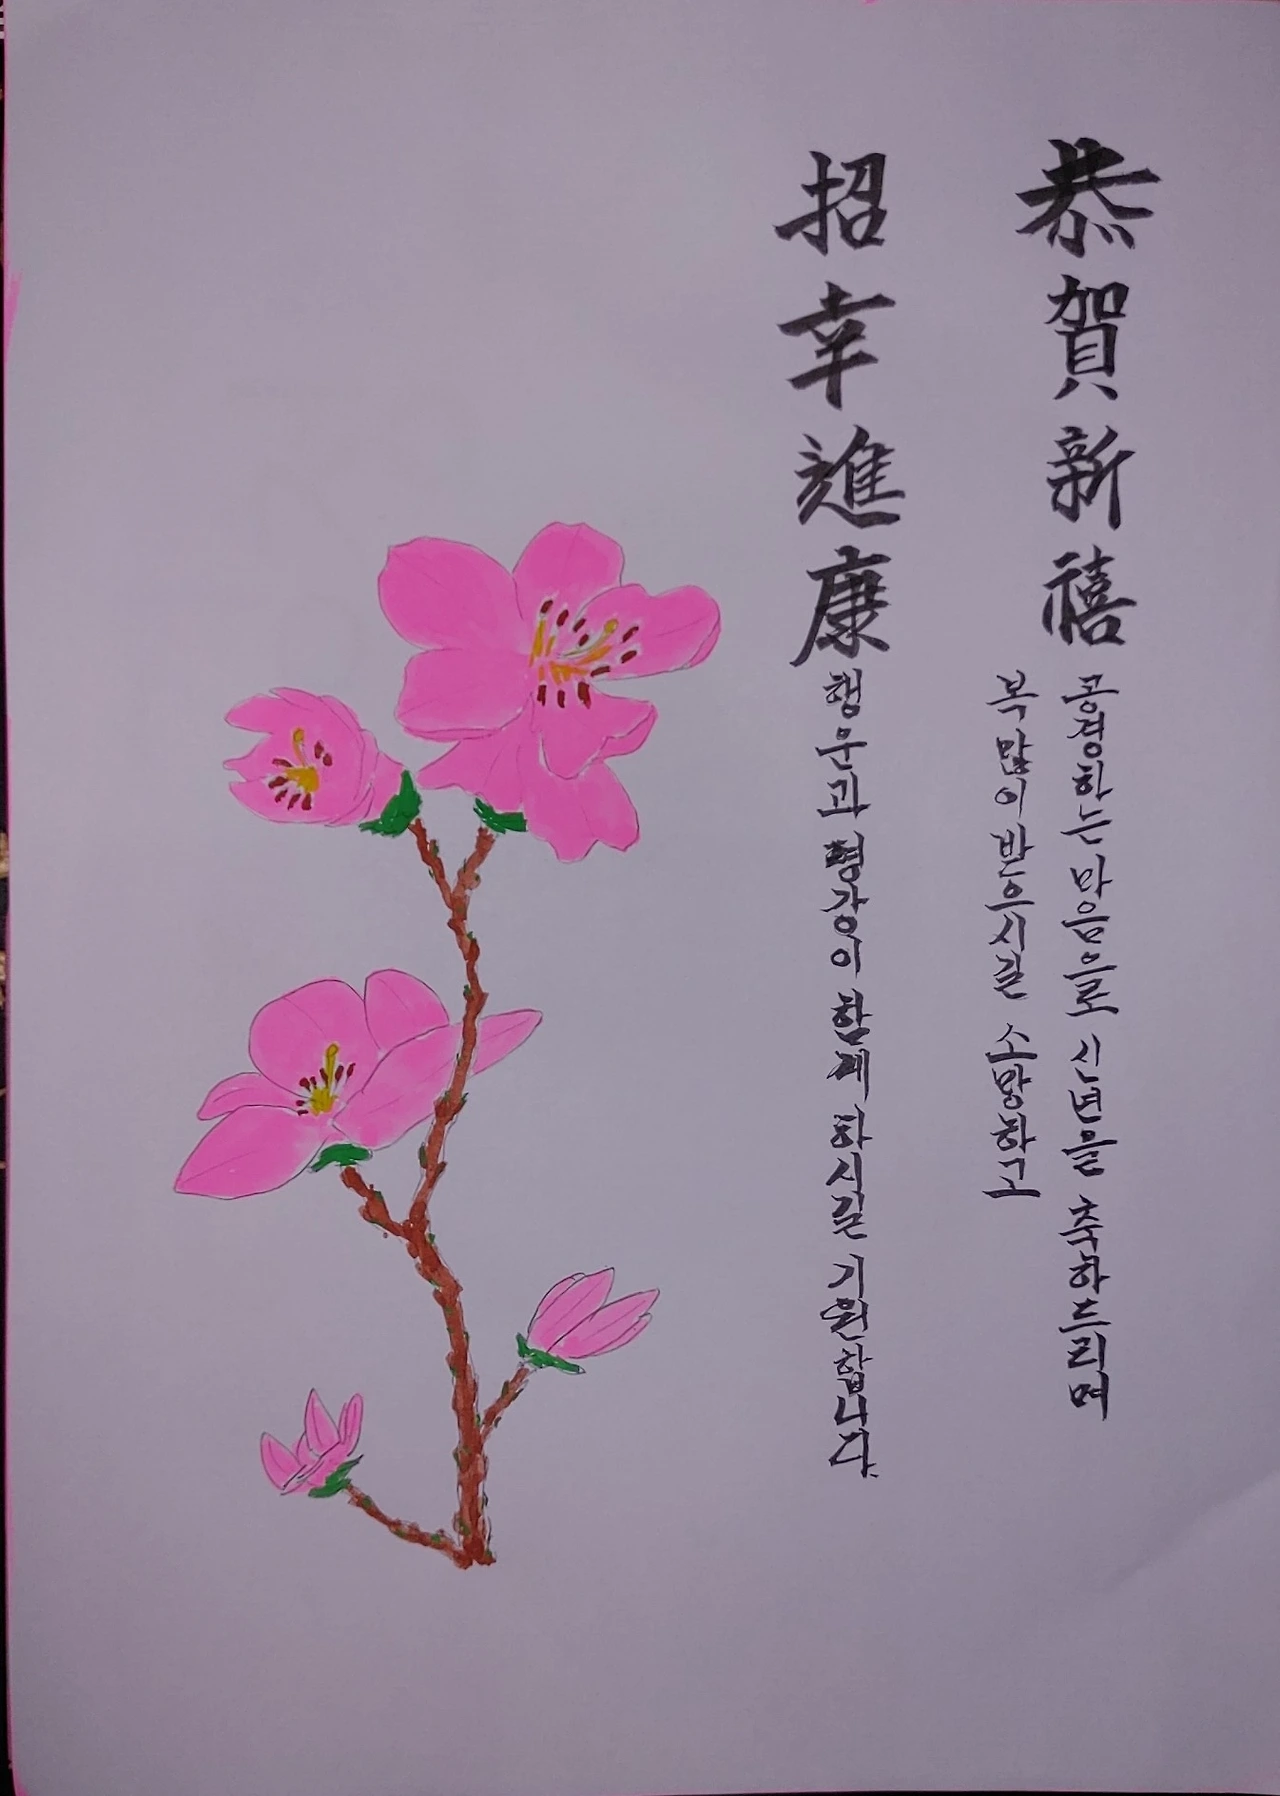 恭賀新禧
공경하는 마음으로 신년을 축하드리며
복 많이 받으시길 소망하고
招幸進康
행운과 평강이 함께 하시길 기원합니다.